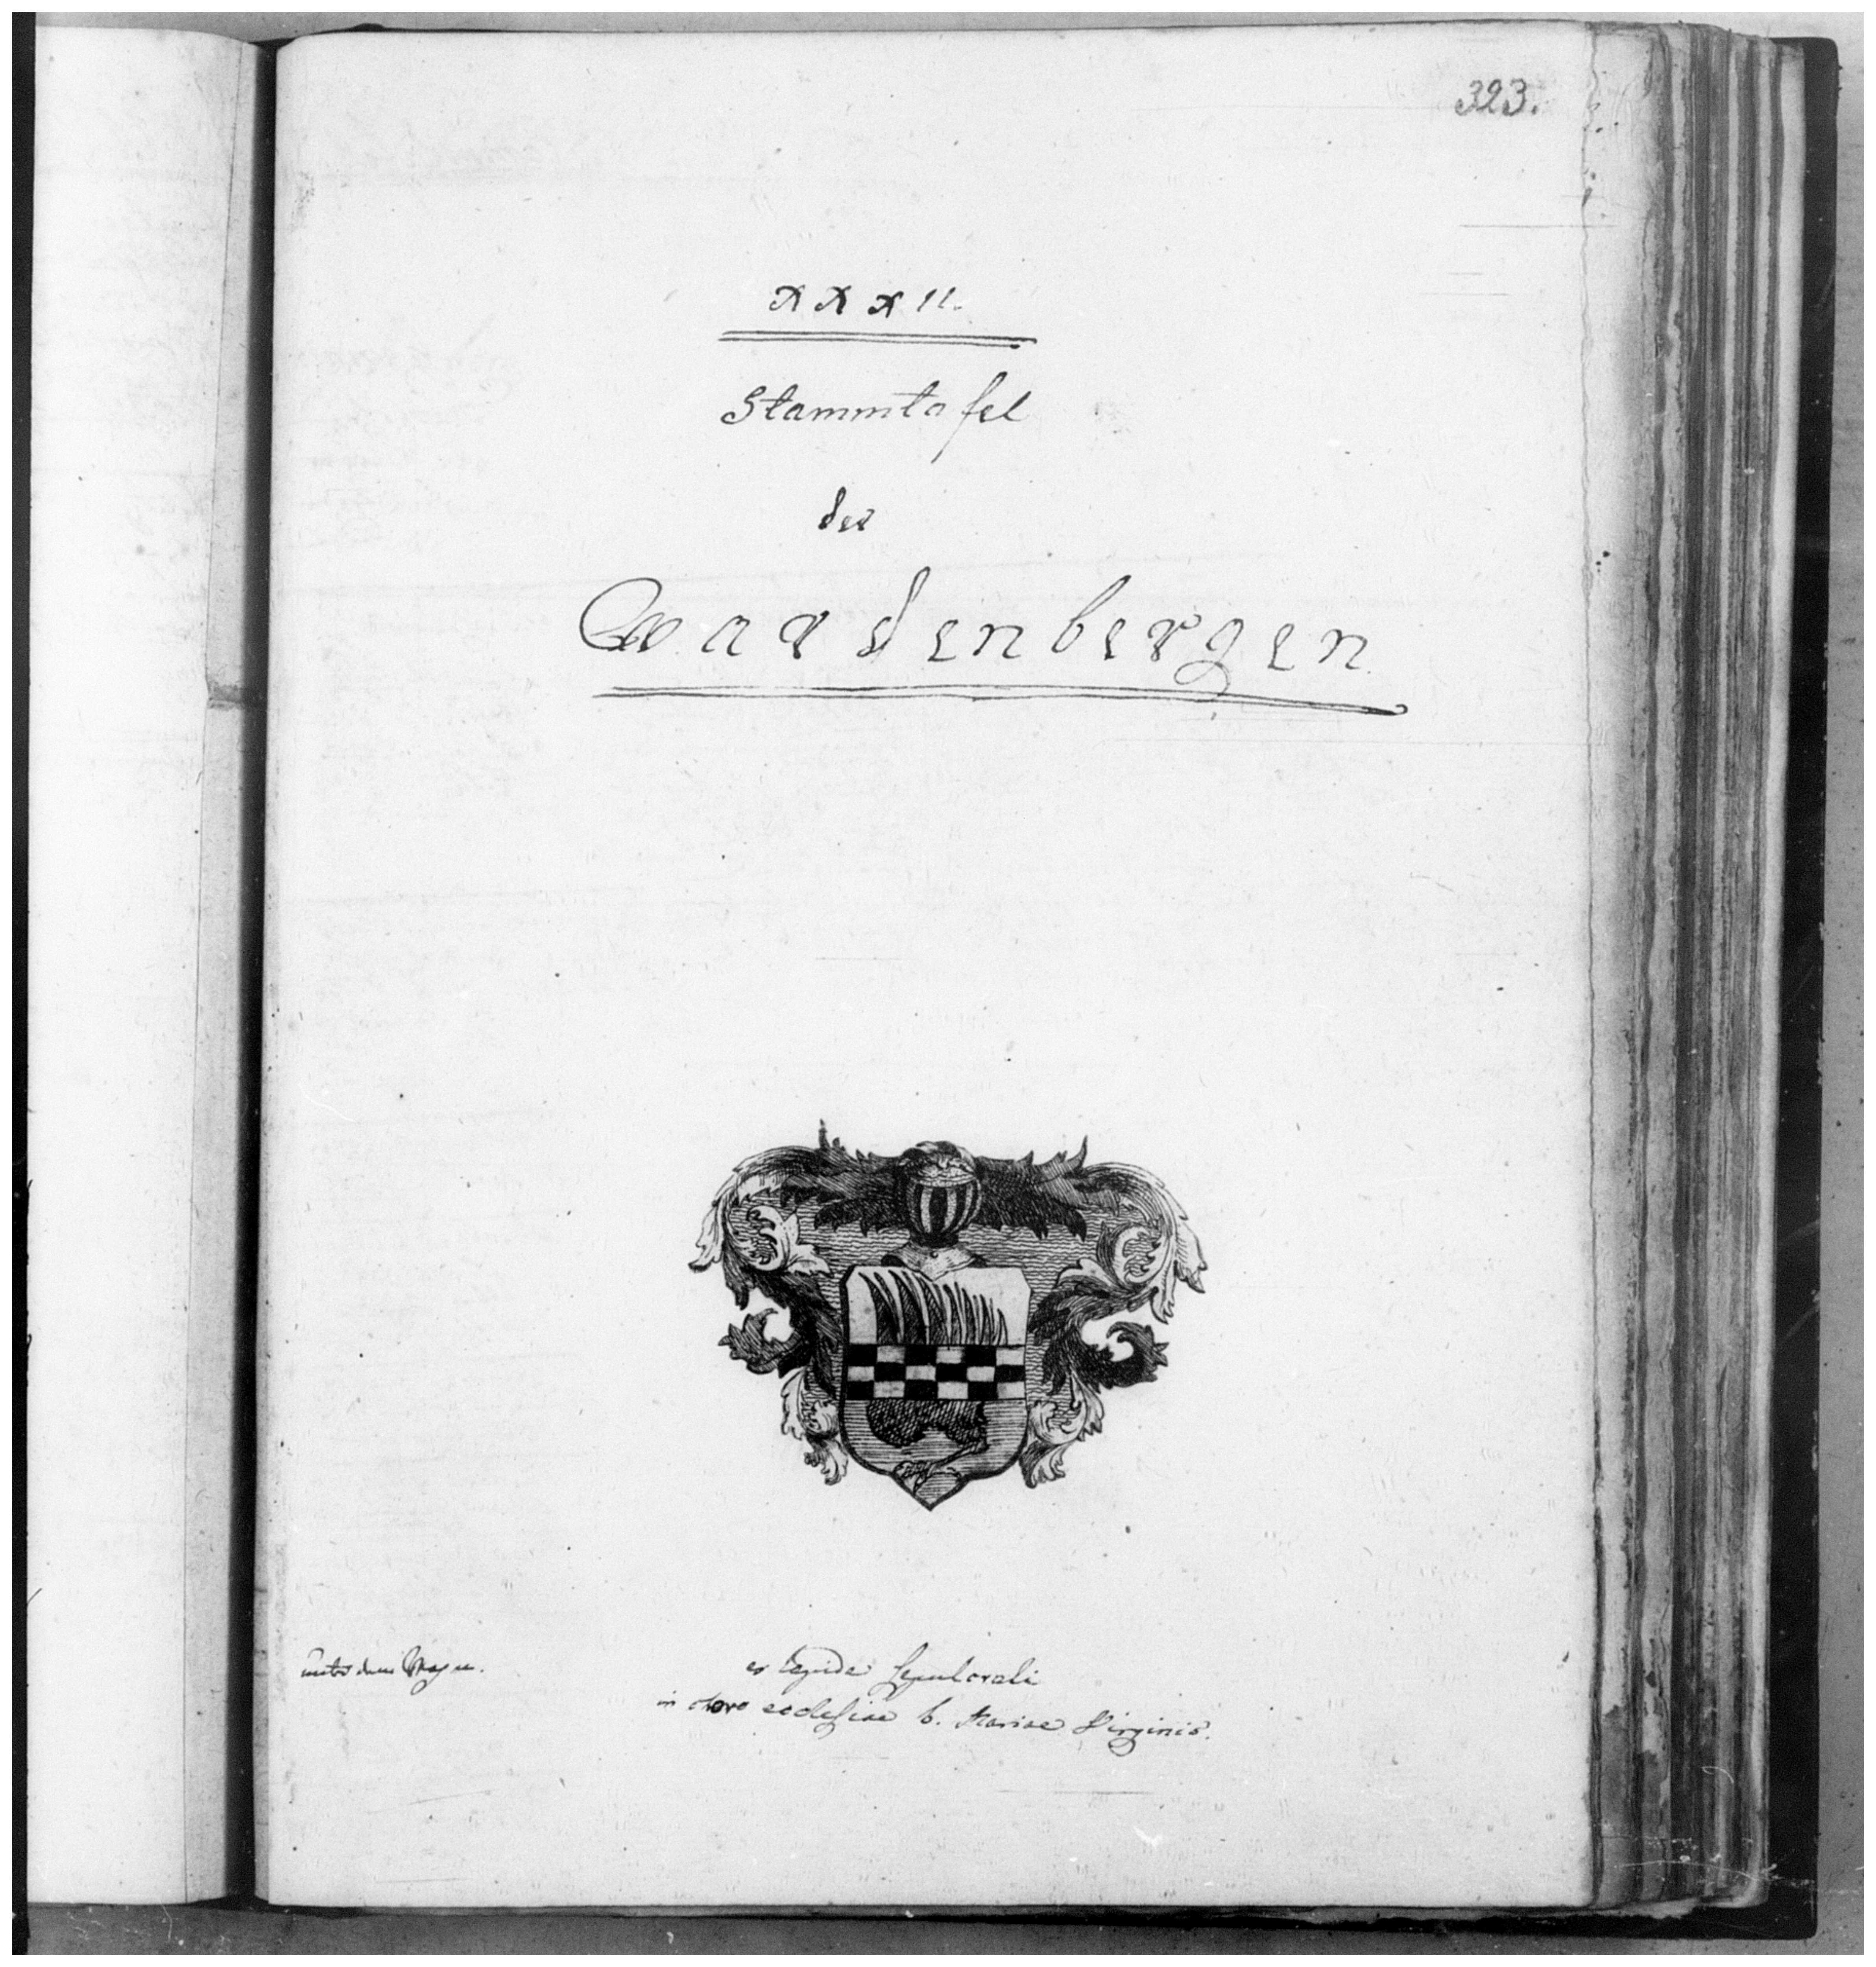 323.
XXXII.
Stammtafel
der
Wardenbergen
ex lapide sepulcrali
in choro ecclesiae b. Mariae Virginis.